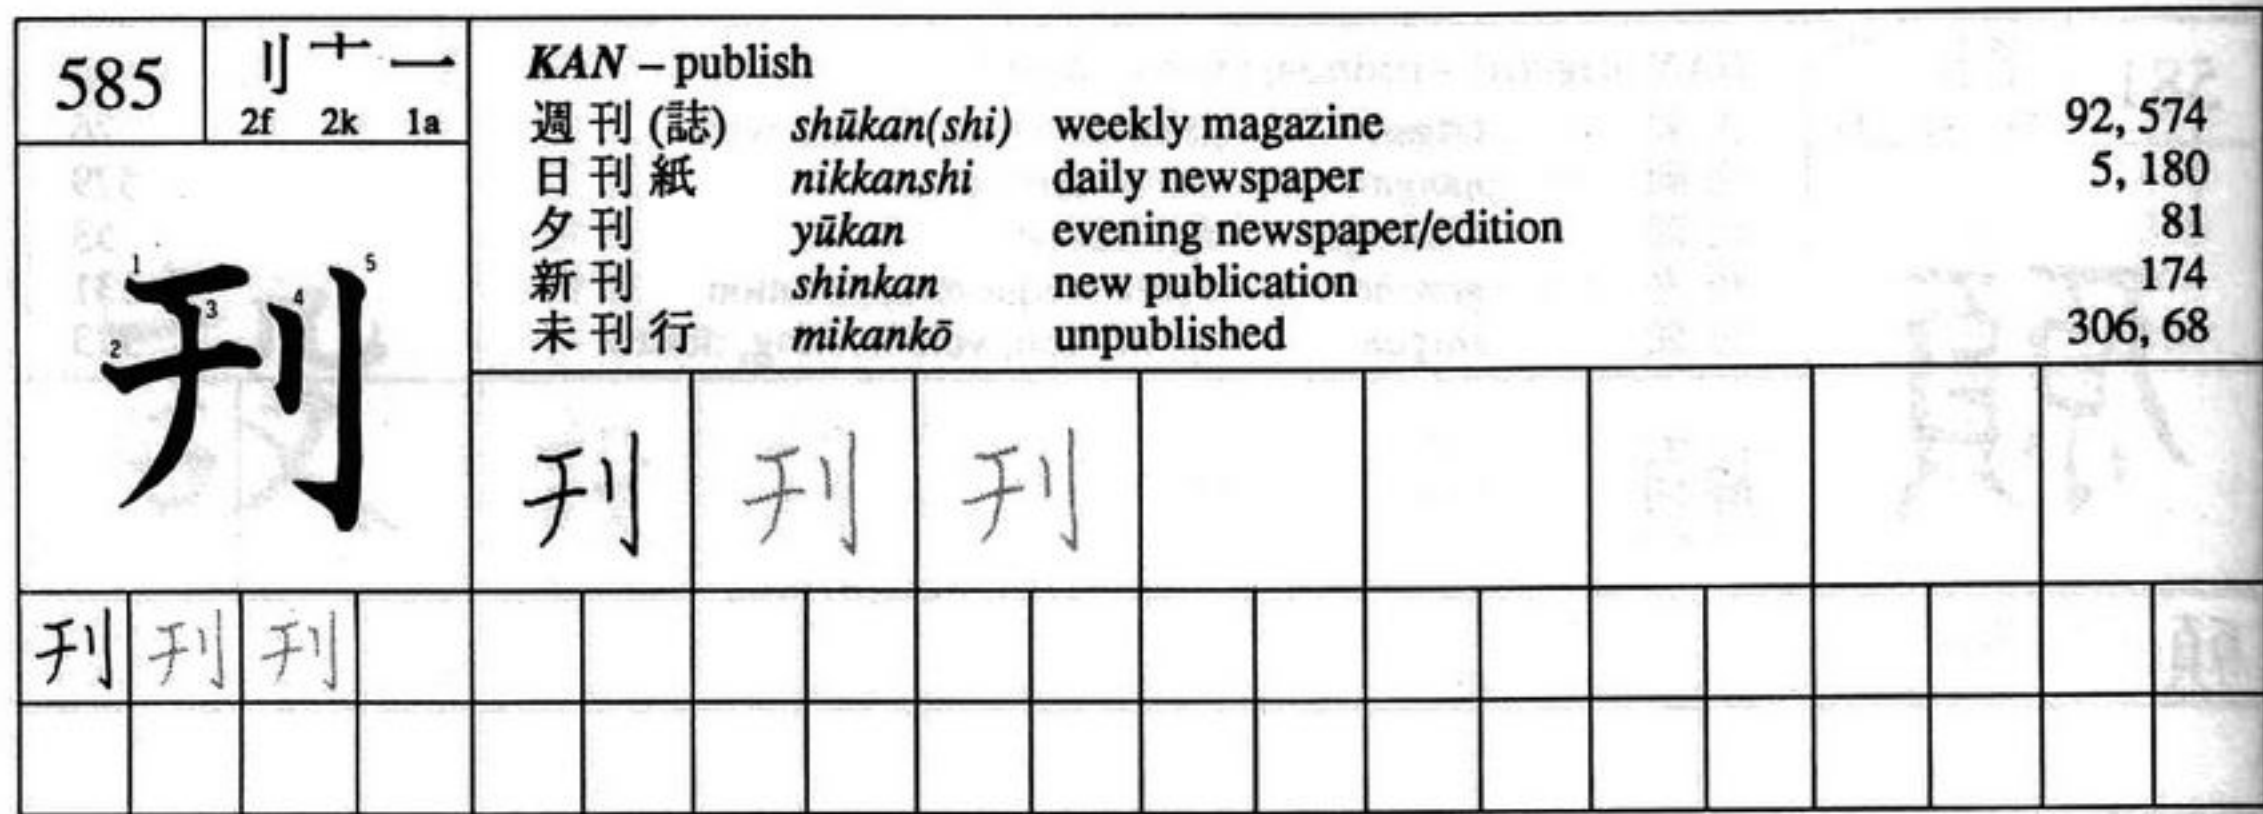 585 刂 亠 一
2f 2k 1a
KAN – publish
週刊(誌) shūkan(shi) weekly magazine 92, 574
日刊紙 nikkanshi daily newspaper 5, 180
夕刊 yūkan evening newspaper/edition 81
新刊 shinkan new publication 174
未刊行 mikankō unpublished 306, 68
1 2 3 4 5
刊
刊 刊 刊
刊 刊 刊